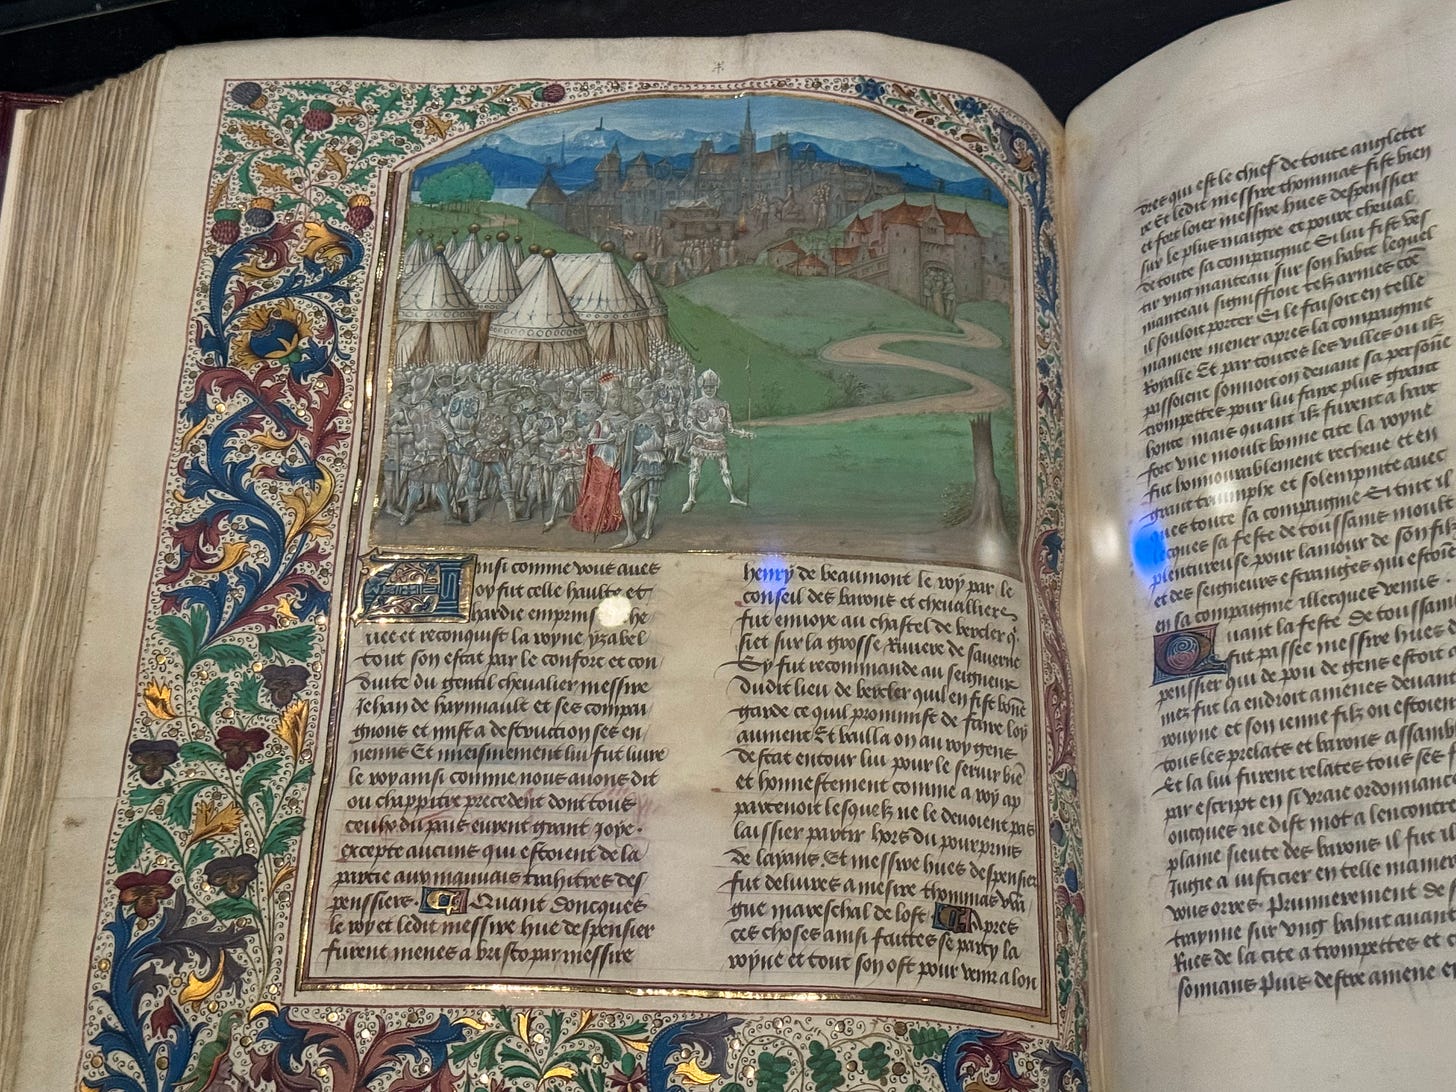 Ainsi comme vous aues
oy fut celle haulte et
hardie emprinse
uee et reconquist la royne yzabel
tout son estat par le confort et con
duite du gentil cheualier messire
Jehan de haynnault et ses compai
gnons et mist a destruction ses en
nemis Et meismement lui fut liure
le roy ainsi comme nous auons dit
ou chappitre precedent dont tous
ceulx du pais eurent grant Joye
excepte aucuns qui estoient de la
partie aux mauuais trahitres des
penssiers. Quant doncques
le roy et ledit messire hue despensier
furent menes a bristo par messire
henry de beaumont le roy par le
conseil des barons et cheualliers
fut enuoye au chastel de bercler q
siet sur la grosse Riuiere de sauerne
Sy fut recommande au seigneur
dudit lieu de bercler quil en fist bone
garde ce quil prommist de faire loy
aument Et bailla on au roy gens
destat entour lui pour le seruir bie
et honnestement comme a roy ap
partenoit lesquelz ne le deuoient pas
laissier partir hors du pourprins
de layans. Et messire hues despensier
fut deliures a mesire thommas
gue mareschal de lost Apres
ces choses ainsi faittes se party la
royne et tout son ost pour venir a lon
dres qui est le chief de toute angleter
re Et ledit messire thommas fist bien
et fort loier messire hues despenssier
sur le plus maigre et poure cheual
de toute sa compaignie Si lui fist ves
tir vng manteau sur son habit lequel
manteau signiffioit telz armes
il souloit porter Si le faisoit en telle
maniere mener apres la compaignie
Royalle Et par toutes les villes ou ilz
passoient sonnoit on deuant sa personne
trompettes pour lui faire plus grant
honte mais quant ilz furent a
fort vne moult bonne cite la royne
fut honnourablement recheue et en
grant triumphe et solempnite auec
ques toute sa compaignie Et tint il
lecques sa feste de toussains moult
plentureuse pour lamour de son filz
et des seigneurs estranges qui estoient
en sa compaignie illecques venus
Quant la feste de toussains
fut passee messire hues
penssier qui de pou de gens estoit
mez fut la endroit amenes deuant
royne et son ienne filz ou estoient
tous les prelats et barons
Et la lui furent relates tous ses
par escript en si vraie ordonnance
oncques ne dist mot a lencontre
plaine sieute des barons il fut
Jugie a iusticier en telle maniere
vous orres. Primierement
trayne sur vng bahut auant
Rues de la cite a trompettes et
sonnans Puis destre amene